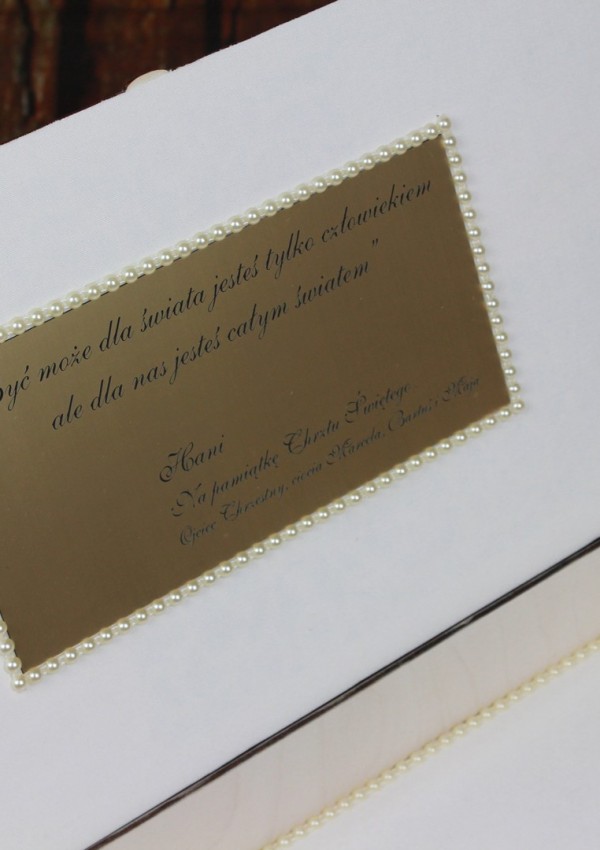 być może dla świata jesteś tylko człowiekiem
ale dla nas jesteś całym światem"
Hani
Na pamiątkę Chrztu Świętego
Ojciec Chrzestny, ciocia Marcela, Bartuś i Maja